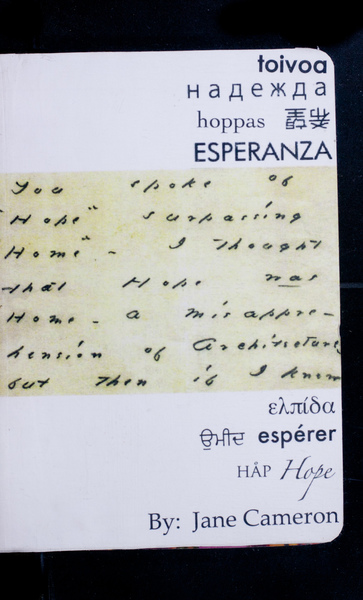 toivoa
надежда
hoppas 希望
ESPERANZA
You spoke of
"Hope" surpassing
Home" - I thought
that Hope was
Home - a misappre-
hension of Architecture
but then if I knew
ελπίδα
ਉਮੀਦ espérer
HÅP Hope
By: Jane Cameron